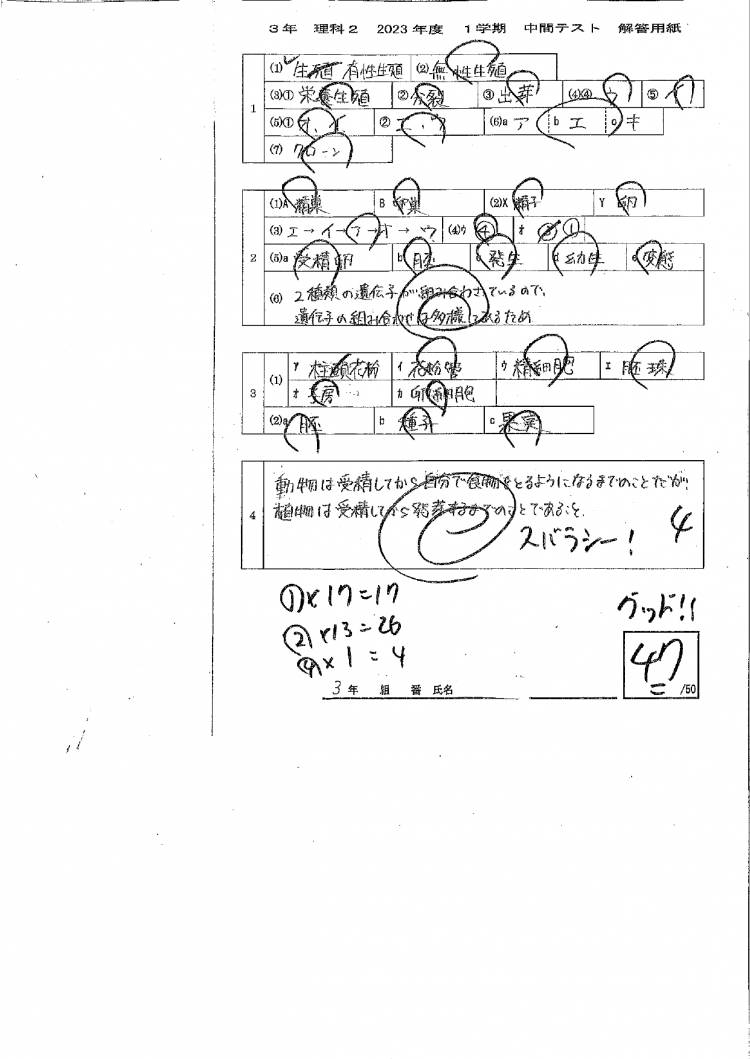 3年 理科2 2023年度 1学期 中間テスト 解答用紙
1
(1) 生殖 有性生殖 (2) 無性生殖
(3)① 栄養生殖 ② 分裂 ③ 出芽 (4)④ ウ ⑤ イ
(5)① オ、イ ② エ、ウ (6)a ア b エ c キ
(7) クローン
2
(1)A 精巣 B 卵巣 (2)X 精子 Y 卵
(3) エ→イ→ア→オ→ウ (4)ウ 4 オ ①
(5)a 受精卵 b 胚 c 発生 d 幼生 e 変態
(6) 2種類の遺伝子が組み合わさっているので、
遺伝子の組み合わせは多様であるため
3
(1) ア 柱頭花粉 イ 花粉管 ウ 精細胞 エ 胚珠
オ 子房 カ 卵細胞
(2)a 胚 b 種子 c 果実
4
動物は受精してから自分で食物をとるようになるまでのことだが、
植物は受精してから発芽するまでのことであること
スバラシー! 4
①×17=17
②×13=26
④×1=4
グッド!!
47
/50
3年 組 番 氏名